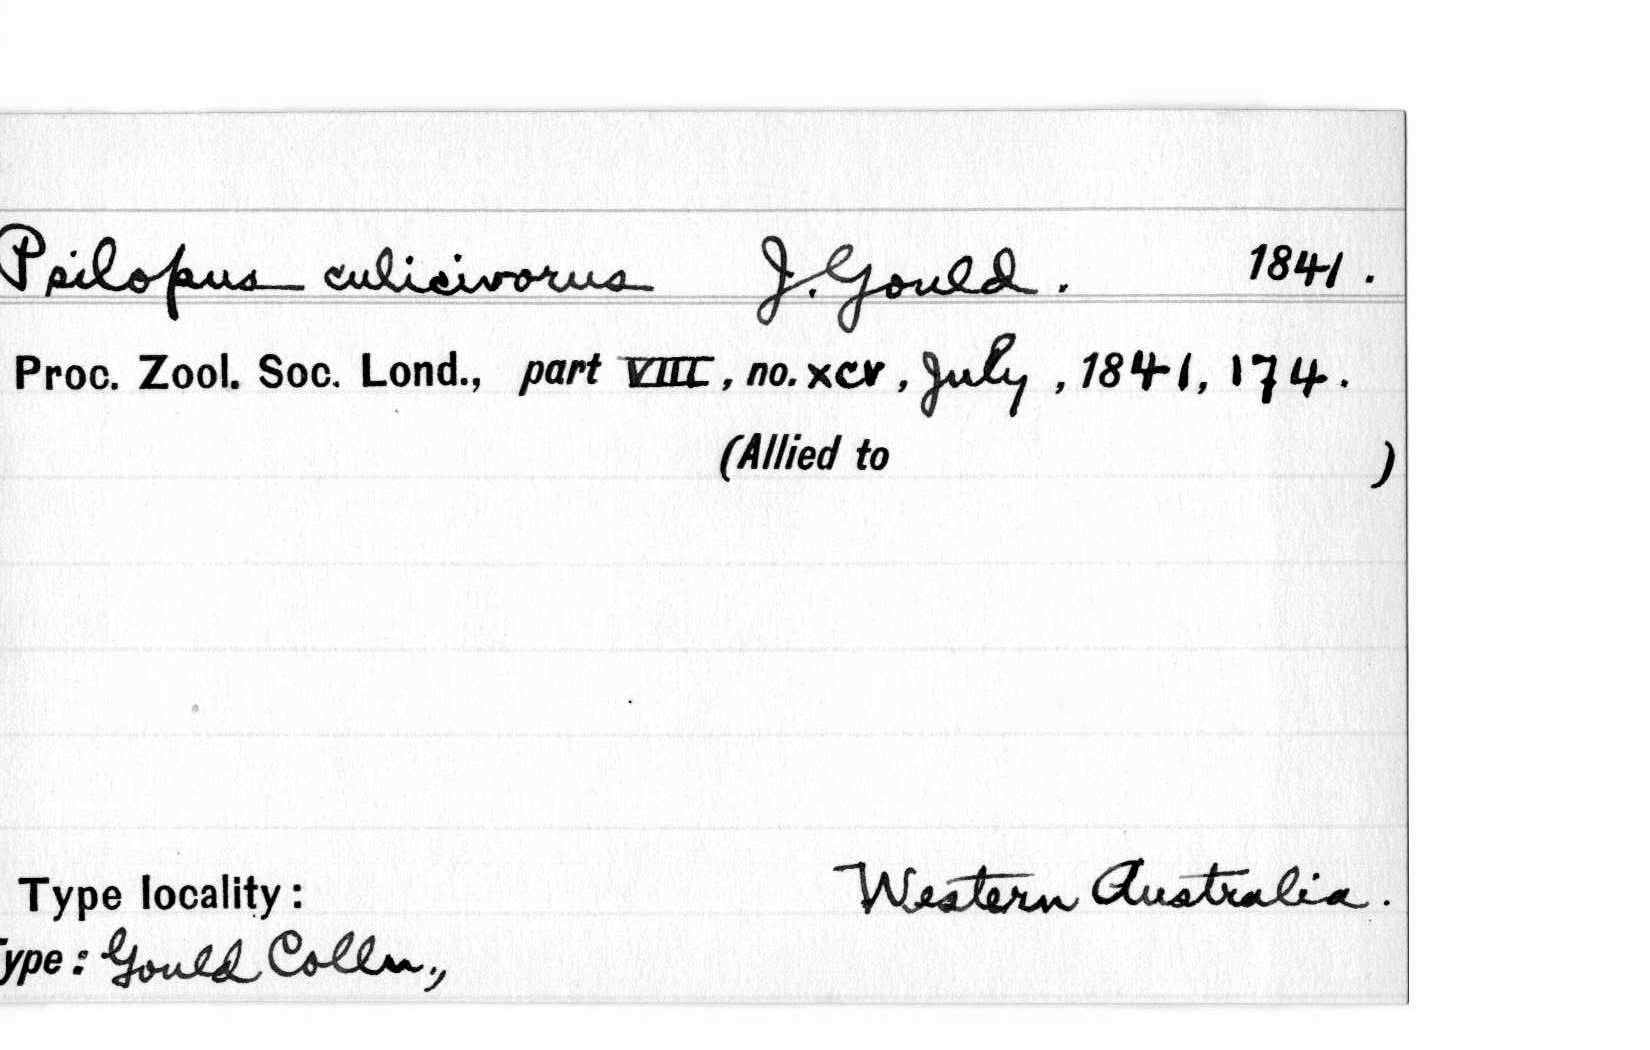 Psilopus culicivorus J. Gould. 1841.
Proc. Zool. Soc. Lond., part VIII, no. xcv, July, 1841, 174.
(Allied to )
Type locality: Western Australia.
Type: Gould Colln.,